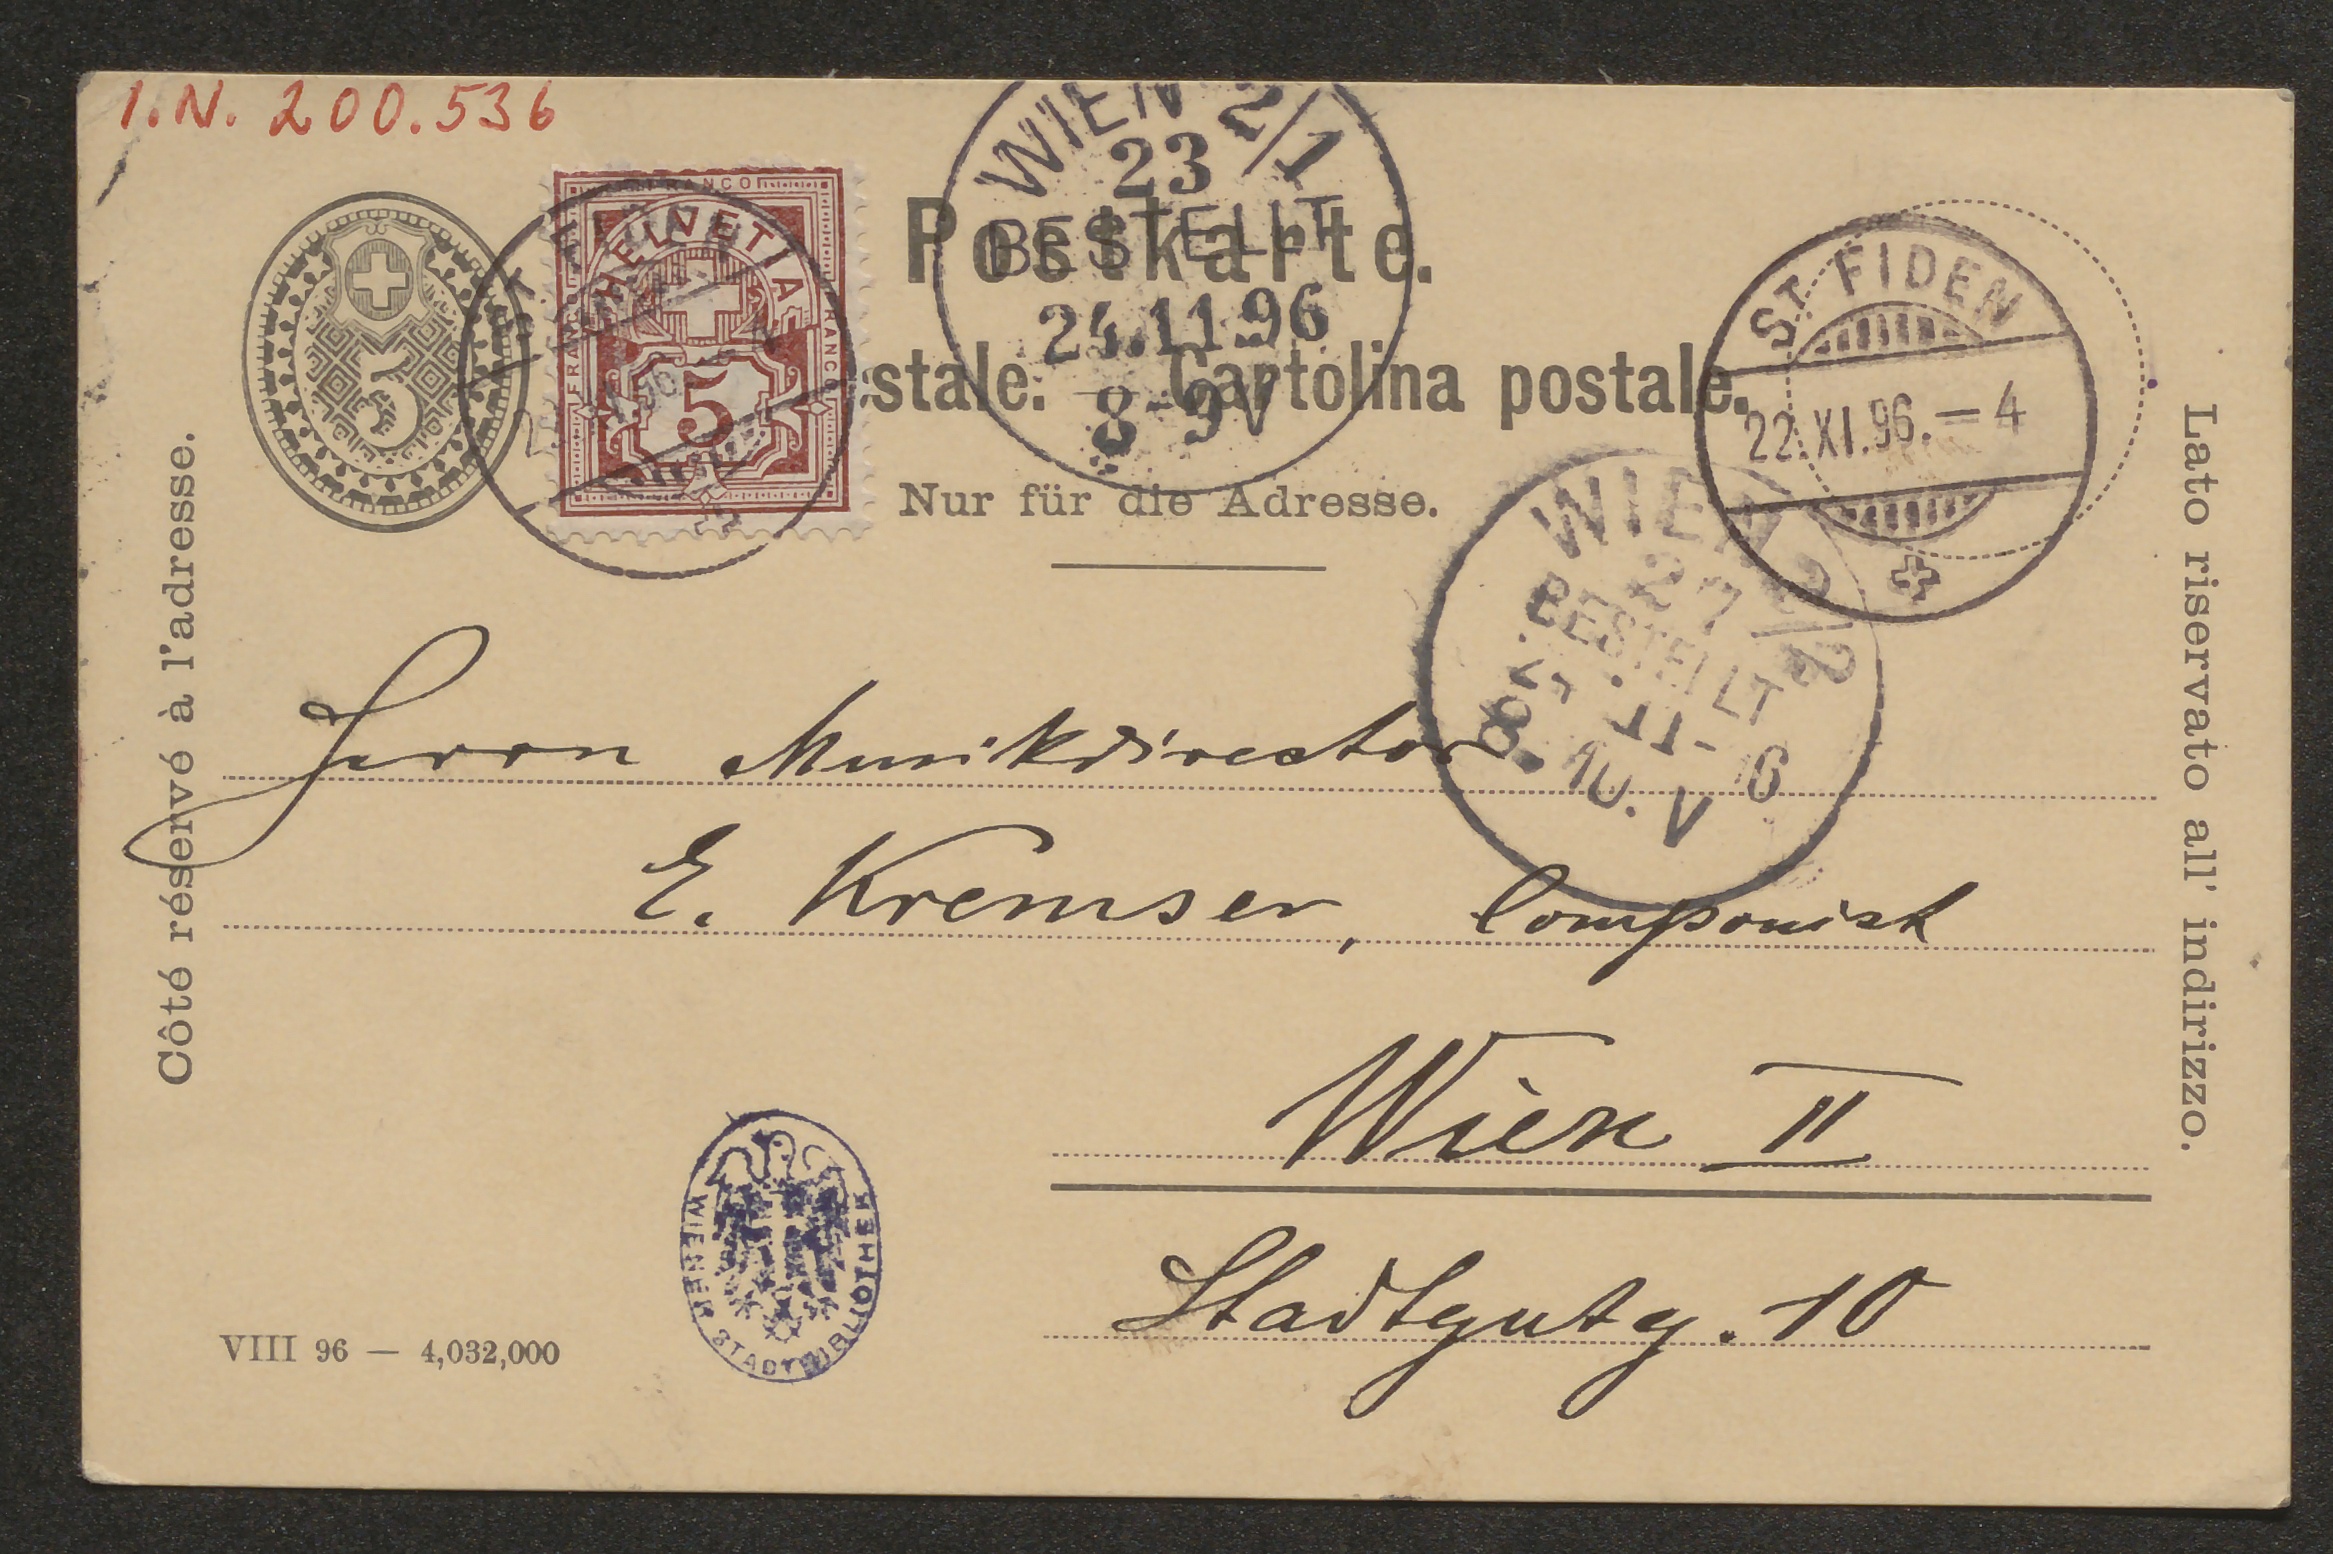 I.N. 200.536
5
FRANCO
HELVETIA
FRANCO
FRANCO
5
WIEN 2/1
23
BESTELLT
24.11.96
8-9V
Postkarte.
stale. — Cartolina postale.
Nur für die Adresse.
ST. FIDEN
22.XI.96.—4
WIEN 2/2
27
BESTELLT
11 6
8. 10. V
Côté réservé à l'adresse.
Lato riservato all' indirizzo.
Herrn Musikdirector
E. Kremser, Componist
Wien II
Stadtgutg. 10
WIENER STADTBIBLIOTHEK
VIII 96 — 4,032,000